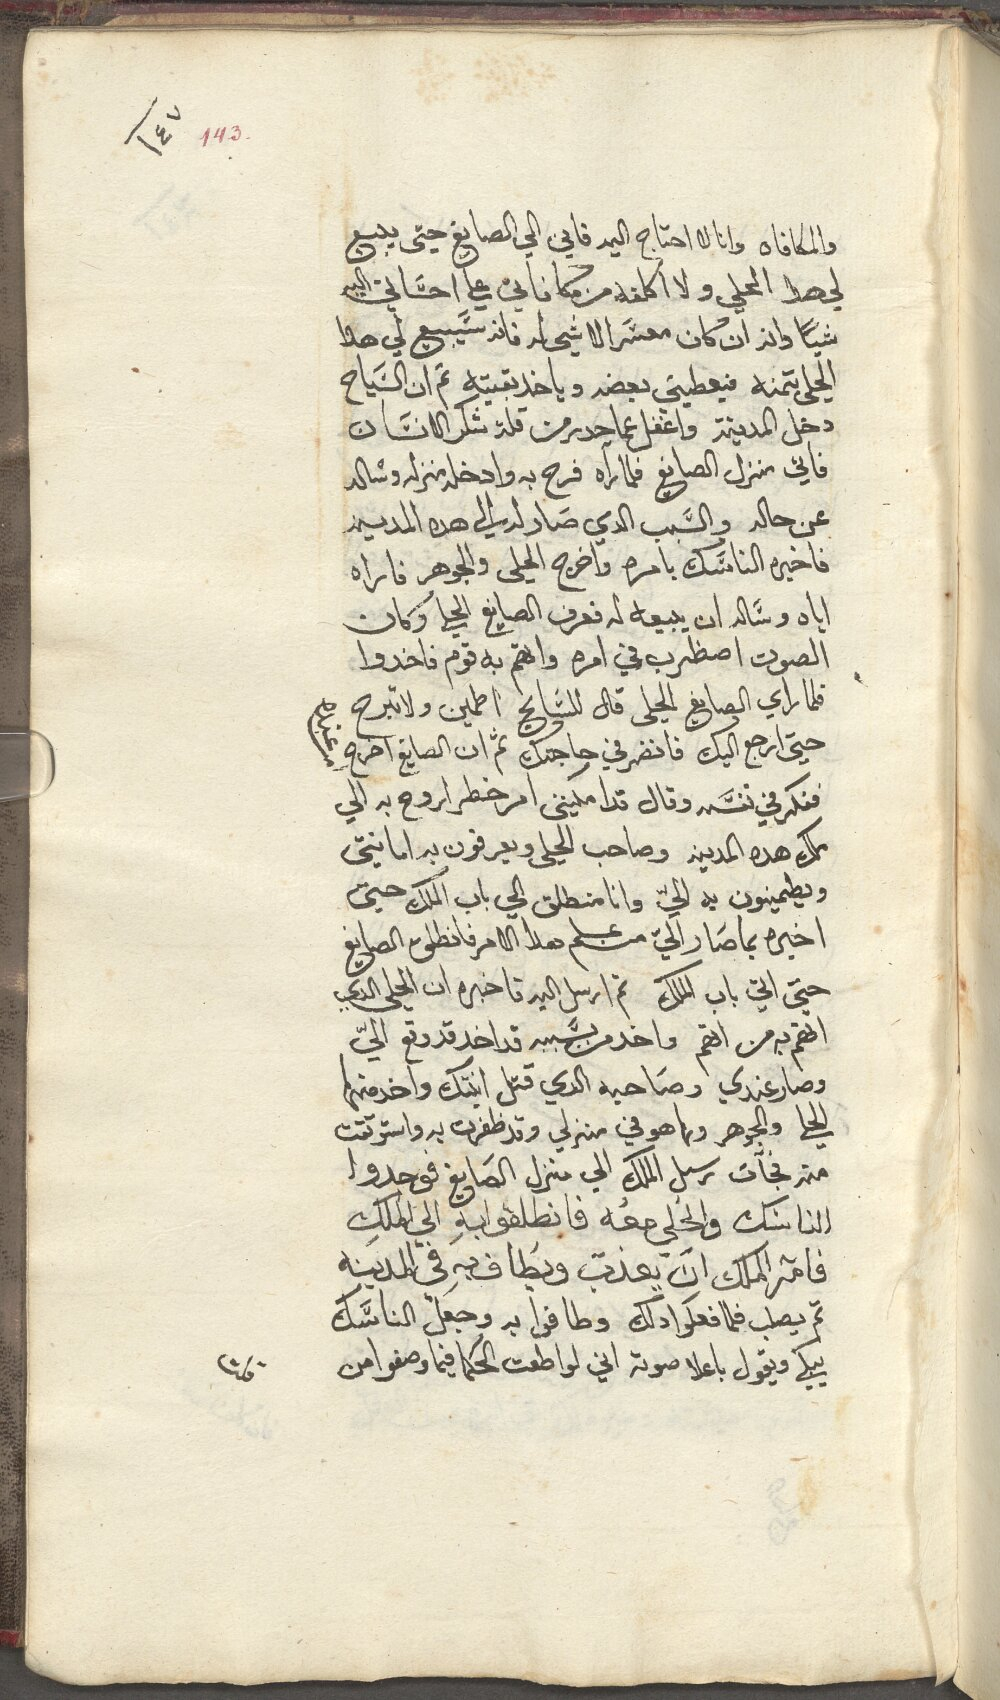 ١٤٧ 143.
والمكافاه وانا لا احتاج اليه فاتي الي الصايغ حيتى يبيع
لي هدا الحلي ولا اكلفه من مكافاتي علي احسَاني اليه
شياً وانه ان كان معسَر الا شي له فانه سَيبيع لي هدا
الحلي بتمنه فيعطيني بعضه وياخد بقيته تم ان السَياح
دخل المدينة واغفل عما حدر من قلة شكر الانسَان
فاتي منزل الصايغ فلما رآه فرح به وادخله منزله وساله
عن حاله والسَبب الدي صَار له الي هده المدينه
فاخبره الناسَك بامره واخرج الحلي والجوهر فاراه
اياه وسَاله ان يبيعه له فعرف الصايغ الحلي وكان
الصوت اضطرب في امره واتهم به قوم فاخدوا
فلما راي الصايغ الحلي قال للسَايح اطمين ولا تبرح
حيتى ارجع اليك فانضر في حاجتك ثم ان الصايغ اخرج من عنده
ففكر في نفسَه وقال قد امكنني امر خطر اروح به الي
ملك هده المدينه وصاحب الحلي ويعرفون به امانيتى
ويطمينون به اليّ وانا منطلق الي باب الملك حيتى
اخبره بما صَار اليّ من علم هدا الامر فانطلق الصايغ
حيتى اتي باب الملك تم ارسل اليه فاخبره ان الحلي الدي
اتهم به من اتهم واخد من بسَببه قد اخد قد وقع اليّ
وصار عندي وصَاحبه الدي قتل ابنتك واخد منها
الحلي والجوهر وها هو في منزلي وقد ظفرت به واستوتقت
منه فجآت رسل الملك الي منزل الصَايغ فوجدوا
الناسَك والحُلي معُه فانطلقوا بهِ الي الملك
فامَر الملك ان يعَذب ويطاف بهِ في المدينه
تم يصلب فلما فعلوا دلك وطافوا به وجعل الناسَك
يبكي ويقول باعلا صوته اني لو اطعت الحكما فيما وصفوا من